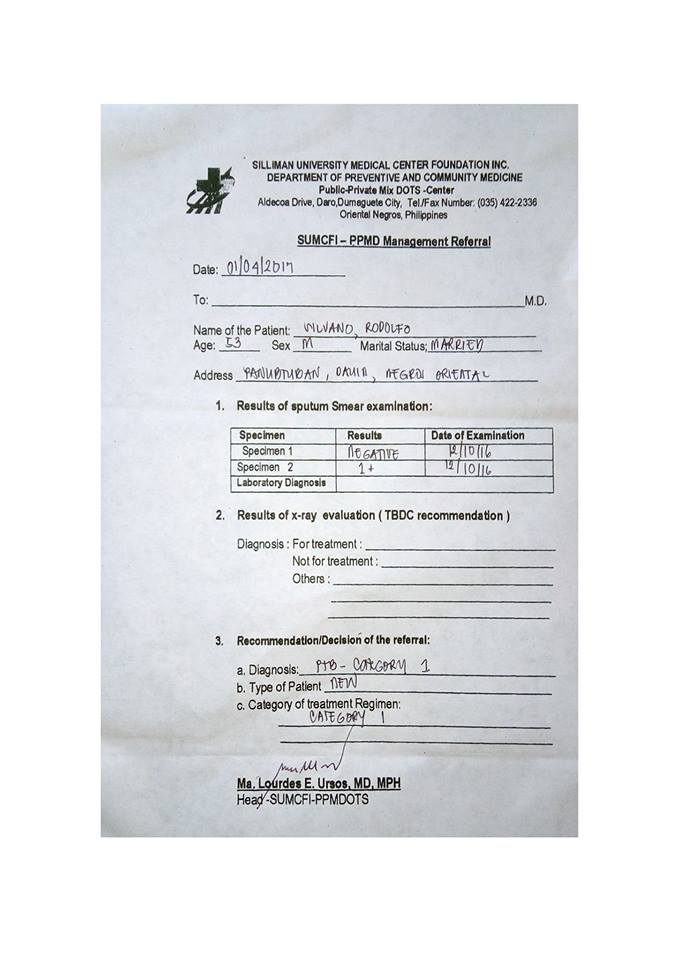 SILLIMAN UNIVERSITY MEDICAL CENTER FOUNDATION INC.
DEPARTMENT OF PREVENTIVE AND COMMUNITY MEDICINE
Public-Private Mix DOTS -Center
Aldecoa Drive, Daro,Dumaguete City, Tel./Fax Number: (035) 422-2336
Oriental Negros, Philippines
SUMCFI – PPMD Management Referral
Date: 01/04/2017
To: M.D.
Name of the Patient: VILVANO, RODOLFO
Age: 53 Sex M Marital Status; MARRIED
Address PANUBTUBAN, DAUIN, NEGROS ORIENTAL
1. Results of sputum Smear examination:
Specimen Results Date of Examination
Specimen 1 NEGATIVE 12/10/16
Specimen 2 1+ 12/10/16
Laboratory Diagnosis
2. Results of x-ray evaluation ( TBDC recommendation )
Diagnosis : For treatment :
Not for treatment :
Others :
3. Recommendation/Decision of the referral:
a. Diagnosis: PTB - CATEGORY 1
b. Type of Patient NEW
c. Category of treatment Regimen:
CATEGORY 1
Ma. Lourdes E. Ursos, MD, MPH
Head -SUMCFI-PPMDOTS